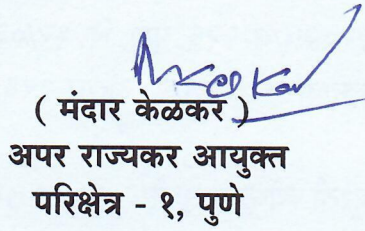 ( मंदार केळकर )
अपर राज्यकर आयुक्त
परिक्षेत्र - १, पुणे